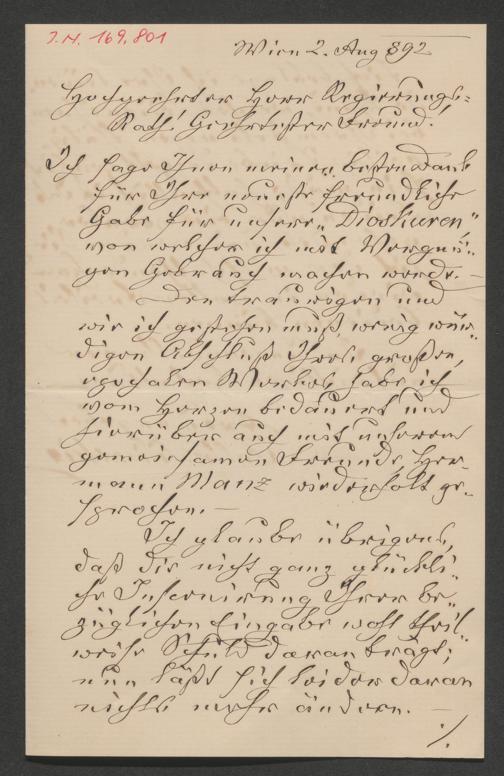 J.N. 169.801
Wien 2. Aug 892
Hochgeehrter Herr Regierungs-
Rath! Geehrtester Freund.
Ich sage Ihnen meinen besten Dank
für Ihre neueste freundliche
Gabe für unsere „Dioskuren"
von welcher ich mit Vergnü-
gen Gebrauch machen werde. –
Den traurigen und
wie ich gestehen muß, wenig wür-
digen Abschluß Ihres großen,
epochalen Werkes habe ich
vom Herzen bedauert und
hierüber auch mit unserem
gemeinsamen Freunde, Her-
mann Manz wiederholt ge-
sprochen. –
Ich glaube übrigens,
daß die nicht ganz glückli-
che Inscenirung Ihrer be-
züglichen Eingabe wohl theil-
weise Schuld daran trägt;
nun läßt sich leider daran
nichts mehr ändern. –
./.